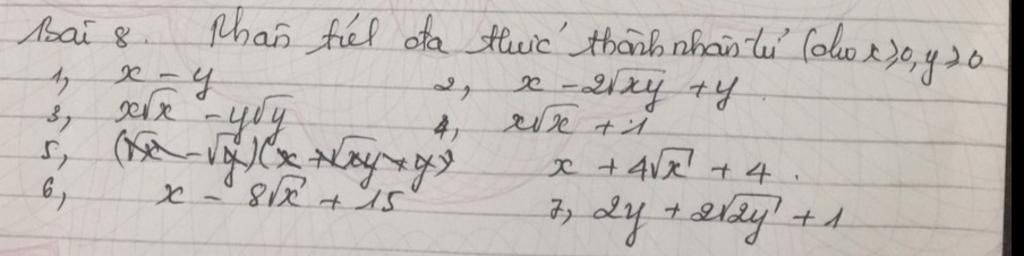 Bài 8. Phân tích đa thức thành nhân tử (cho x ≥ 0, y ≥ 0
1, x - y 2, x - 2√xy + y.
3, x√x - y√y 4, x√x + 1
5, (√x - √y)(x + √xy + y) x + 4√x + 4.
6, x - 8√x + 15 7, 2y + 2√2y + 1